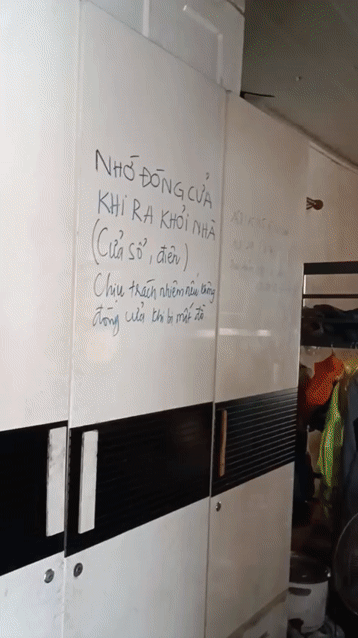 NHỚ ĐÓNG CỬA
KHI RA KHỎI NHÀ
(Cửa sổ, điện)
Chịu trách nhiệm nếu không
đóng cửa khi bị mất đồ